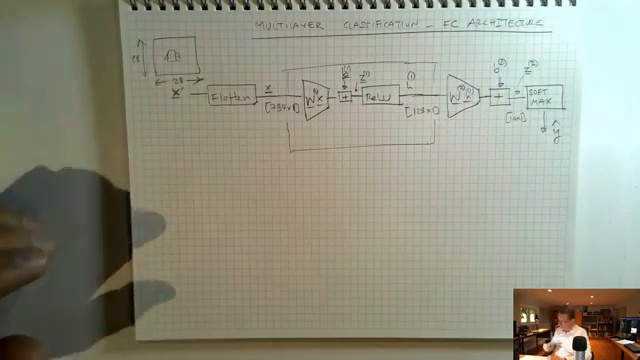 MULTILAYER CLASSIFICATION - FC ARCHITECTURE
28
28
X'
Flatten
x
[784x1]
W(1) x
b(1)
+
z(1)
ReLU
h(1)
[128x1]
W(2) h(1)
b(2)
+
z(2)
[10x1]
SOFT
MAX
ŷ